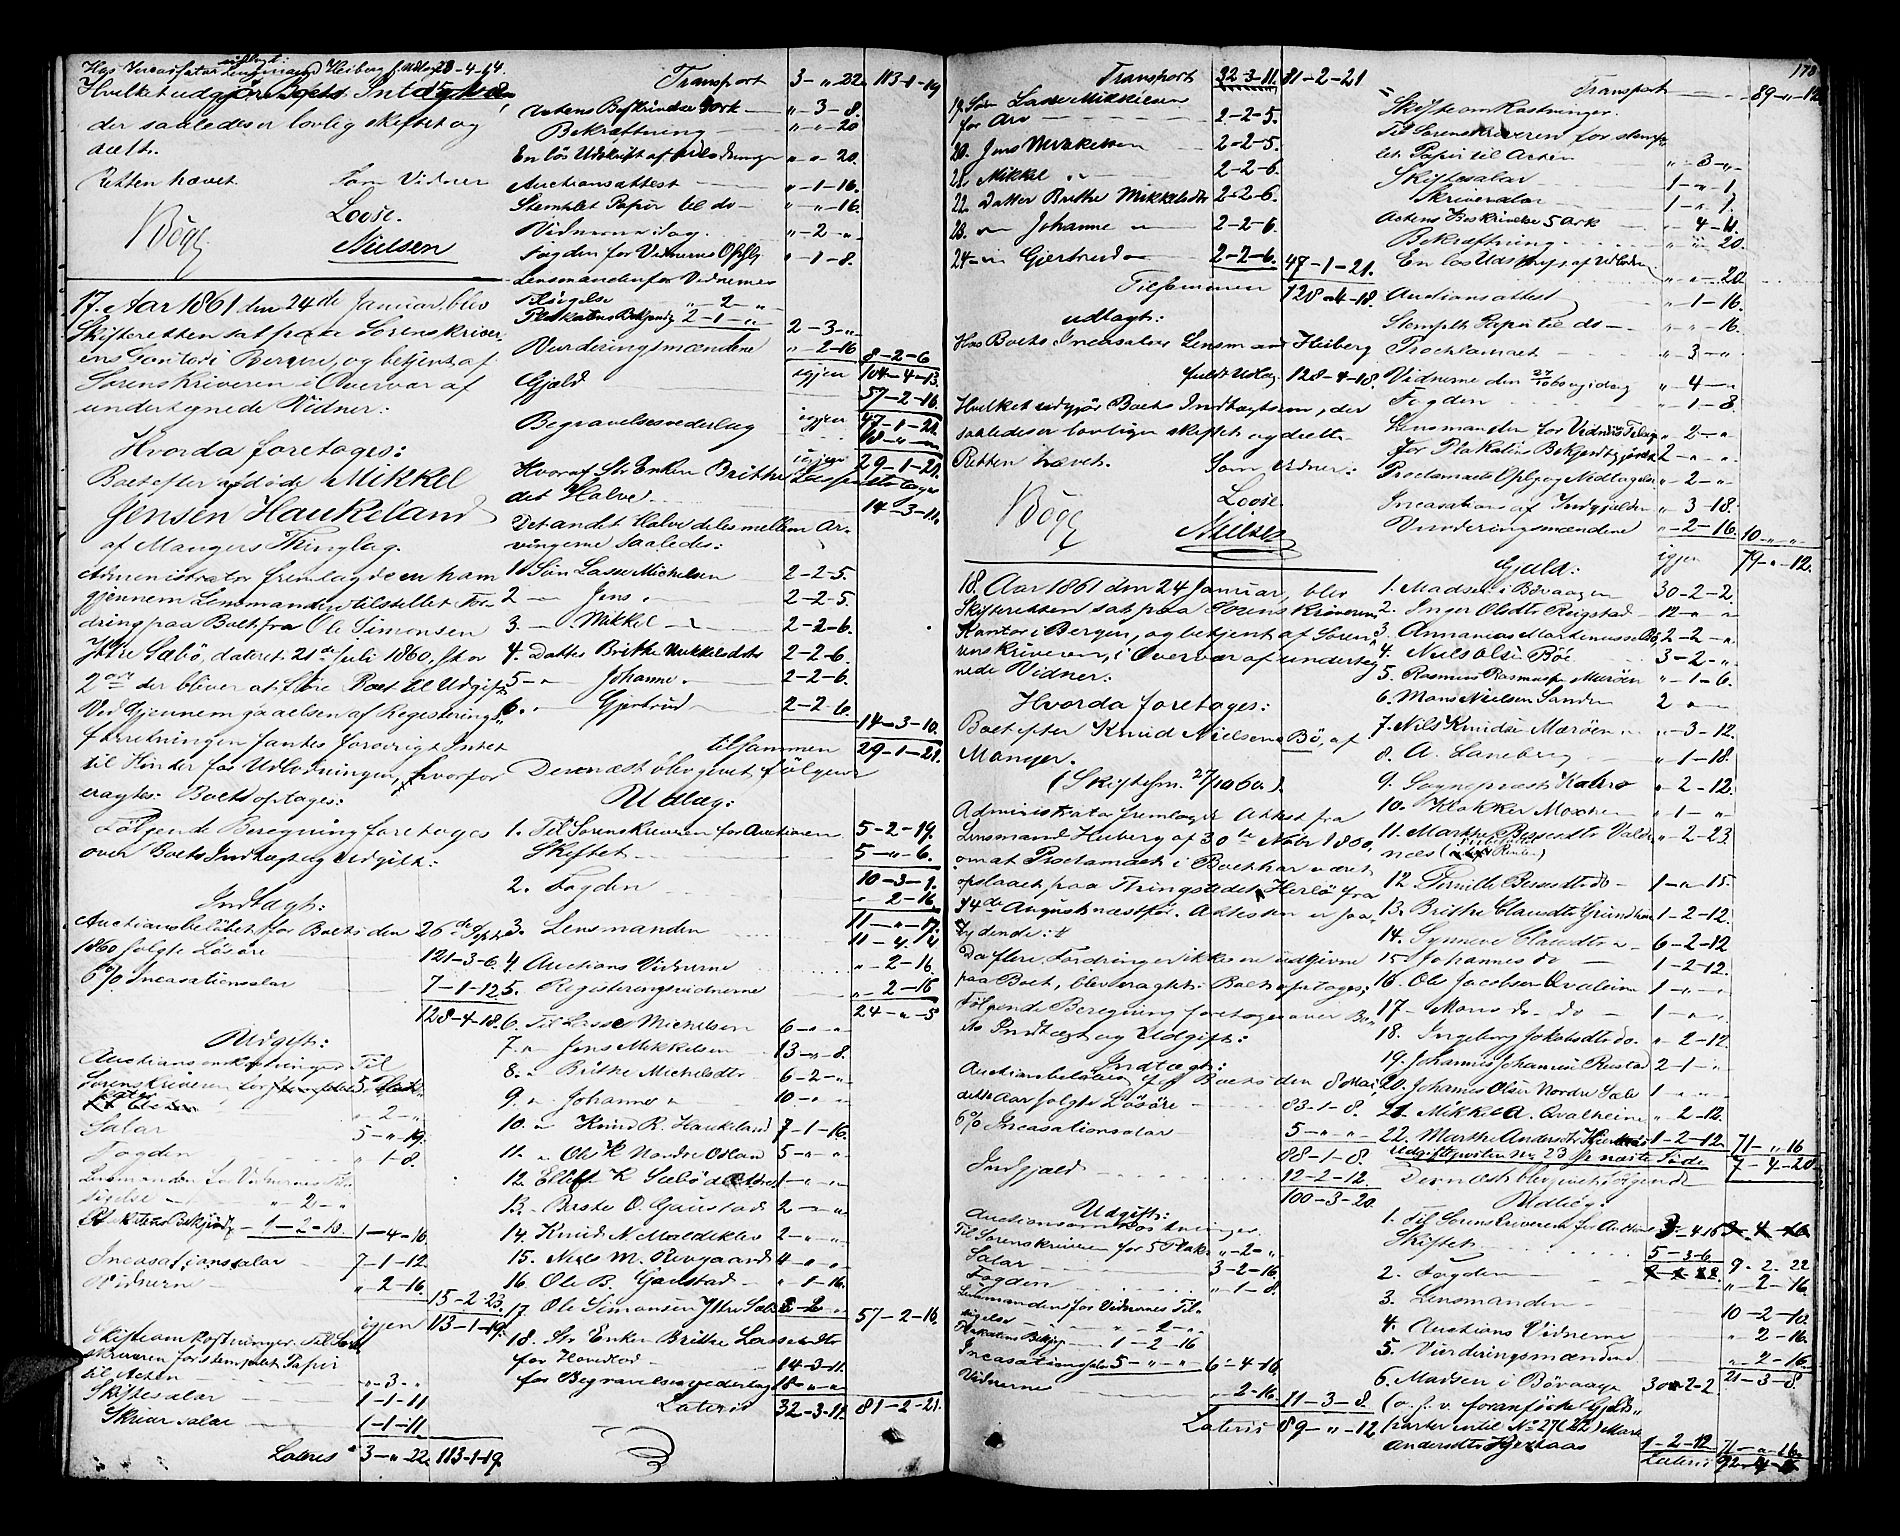 Hos Incasator Lensmand Heiberg f. Udlæg 23-4-14.
Hvilket udgjør Boets Indtægt,
der saaledes er lovlig skiftet og
deelt.
Retten hævet. Som Vidner
Bøgh Loose.
Nielsen
17. Aar 1861 den 24de Januar, blev
Skifteretten sat paa Sorenskriver-
ens Contor i Bergen, og betjent af
Sorenskriveren i Overvær af
undertegnede Vidner:
Hvorda foretoges:
Boet efter afdøde Mikkel
Jensen Haukeland
af Mangers Thinglag.
Administrator fremlagde en ham
gjennem Lensmanden tilstillet For-
dring paa Boet fra Ole Simonsen
Yttre Sæbø, dateret 21de Juli 1860, stor
2 ort der bliver at føre Boet til Udgift
Ved Gjennemgaaelsen af Registerings-
forretningen fandtes forøvrigt Intet
til Hinder for Udlodningen, hvorfor
eragtes: Boet optages:
Følgende Beregning foretoges
over Boets Indtægt og Udgift:
Indtægt:
Auctionsbeløbet for Boets den 26de Septr
1860 solgte Løsøre 121-3-6.
6% Incasationsalar 7-1-12
128-4-18.
Udgift:
Auctionsomkostninger Til
Sorenskriveren for
" 2 - "
Salar 5-"-19.
Fogden " 1-8.
Lensmanden for Vidnernes Til-
sigelse " 2 - "
Plakatens Bekjendtg. 1-2-10. 1-4-16.
Incasationssalar 7-1-12
Vidnerne " 2-16.
15-2-23.
igjen 113-1-19.
Skifteomkostninger. Til Soren-
skriveren for stemplet Papir
til Acten "-3-"
Skiftesalar 1-1-11
Skriversalar 1-1-11.
Lateris 3-"-22. 113-1-19.
Transport 3-"-22. 113-1-19
Actens Beskrivelse 4 ork "-3-8.
Bekræftning "-"-20
En løs Udskrift af Udlodningen "-"-20.
Auctionsattest "-1-16.
Stemplet Papir til do "-"-16.
Vidnerne i dag "-2-"
Fogden for Vidnernes Opsly "-1-8.
Lensmanden for Vidnernes
Tilsigelse "-2-"
Plakatens Bekjendtg 2-1-" 2-3-"
Vurderingsmændene "-2-16 8-2-6
igjen 104-4-13.
Gjæld 57-2-16.
igjen 47-1-21.
Begravelsesvederlag 18-"-"
igjen 29-1-21.
Hvoraf Str. Enken Brithe Lassesdtr tager
det Halve 14-3-11.
Det andet Halve deles mellem Ar-
vingerne saaledes:
1 Søn Lasse Michelsen 2-2-5.
2 — Jens " 2-2-5.
3 — Mikkel " 2-2-6.
4. Datter Brithe Mikkelsdtr 2-2-6.
5 " Johanne " 2-2-6.
6. " Gjertrud 2-2-6.
14-3-10.
tilsammen 29-1-21.
Dernæst blev givet følgende
Udlæg:
1. Til Sorenskriveren for Auctionen 5-2-19.
Skiftet 5-"-6.
10-3-1.
2. Fogden "-2-16
11-"-17.
3. Lensmanden 11-4-4
4. Auctions Vidnerne "-2-16.
5. Registeringsvidnerne "-2-16
24-"-5
6. Til Lasse Michelsen 6-"-"
7. " Jens Mikkelsen 13-"-8.
8. " Brithe Michelsdtr 6-2-"
9. " Johanne " 10-"-"
10. " Knud R. Haukeland 7-1-16.
11. " Ole K Nordre Odland 5-"-"
12. Ellef K Sæbø 1-"-"
13. Baste O. Gaustad 2-"-"
14. Knud N Maldekleiv 2-"-"
15. Niels M. Risgaard "-"-"
16. Ole B. Gaustad "-1-16.
17. Ole Simonsen Yttre Sæbø 2-" 57-2-16.
18. Str. Enken Brithe Lassesdtr
for Hovedlod 14-3-11.
for Begravelsesvederlag 18-"-"
Lateris 32-3-11. 81-2-21.
Transport 32-3-11. 81-2-21
19. Søn Lasse Mikkelsen
for Arv 2-2-5.
20. Jens Mikkelsen 2-2-5.
21. Mikkel " 2-2-6.
22. Datter Brithe Mikkelsdtr 2-2-6.
23. " Johanne " 2-2-6.
24. " Gjertrud " 2-2-6. 47-1-21.
Tilsammen 128-4-18.
udlagt:
Hos Boets Incasator Lensmand Heiberg
fuldt Udlæg 128-4-18.
Hvilket udgjør Boets Indtægtsum, der
saaledes er lovligen skiftet og deelt.
Retten hævet. Som Vidner:
Bøgh Loose.
Nielsen
18. Aar 1861 den 24 Januar, blev
Skifteretten sat paa Sorenskriverens
Kantor i Bergen, og betjent af Soren-
skriveren, i Overvær af underteg-
nede Vidner:
Hvorda foretoges:
Boet efter Knud Nielsen Bø, af
Manger.
(Skiftesm. 27/10 60.)
Administrator fremlagde Attest fra
Lensmand Heiberg af 30te Novbr 1860,
om at Proclamaet i Boet har været
opslaaet paa Thingstedet Herlø fra
14de August næstfør. Attesten er saa-
lydende:
Da flere Fordringer ikke ere indgivne
paa Boet, blev eragtet: Boet optages;
Følgende Beregning foretoges over Bo-
ets Indtægt og Udgift:
Indtægt:
Auctionsbeløbet for Boets den 8 Mai
dette Aar solgte Løsøre 83-1-8.
6% Incasationsalar 5-"-"
88-1-8.
Indgjæld 12-2-12.
100-3-20.
Udgift:
Auctionsomkostninger.
Til Sorenskriveren for 5 Plakr "-2-"
Salar 3-2-16.
Fogden "-1-8.
Lensmanden for Vidnernes Til-
sigelse "-2-"
Plakatens Bekjg. 1-2-16
Incasationssalar 5-"-" 6-4-16.
Vidnerne "-2-16. 11-3-8.
Lateris 89-"-12
178
Transport 89-"-12
Skifteomkostninger.
Til Sorenskriveren for stemp-
let Papir til Acten "-3-"
Skiftesalar 1-"-1
Skriversalar 1-"-1.
Actens Beskrivelse 5 Ark "-4-4.
Bekræftning "-"-20.
En løs Udskrift af Udlodn "-"-20
Auctionsattest "-1-16.
Stemplt Papir til do "-"-16.
Proclamaet "-3-"
Vidnerne den 27/10 60 og idag "-4-"
Fogden "-1-8.
Lensmanden for Vidners Tilsig "-2-"
for Plakatens Bekjendtgjørelse 2-"-"
Proclamaets Opslag og Nedtagelse "-2-"
Incasation af Indgjælden "-3-18.
Vurderingsmændene "-2-16. 10-"-"
igjen 79-"-12.
Gjæld:
1. Madsen i Bøvaagen 30-2-2.
2. Inger Olsdtr Røigstad 12-"-"
3. Annanias Mortenussen Bø 2-2-"
4. Niels Olsen Bøe 3-2-"
5. Rasmus Rasmussen Marøen "-1-6.
6. Mons Nielsen Sanden 2 "-"
7. Nils Knudsen Marøen "-3-12.
8. A. Landberg "-1-18.
9. Sogneprest Kahrs "-2-12.
10. Klokker Mowinckel "-1-"
11. Marthe Bessesdtr Valde- "-2-23.
næs
12. Pernille Bessesdtr do 1-"-15.
13. Brithe Clausdtr Grindheim 1-2-12.
14. Synneve Clausdtr " 6-2-12
15. Johannes do 1-2-12.
16. Ole Jacobsen Qvalheim 1-"-"
17. Mons do do 1-"-"
18. Ingeborg Jakobsdtr do. "-2-12.
19. Johannes Johannesen Rustad 2-1-"
20. Johannes Olsen Nordre Sæbø 1-"-"
21. Mikkel A. Qvalheim "-2-12.
22. Marthe Andersdtr 1-2-12. 71-"-16
Udgiftsposten No 23 se næste Side 7-4-20.
Dernæst blev givet følgende
Udlæg:
1. Til Sorenskriveren for Auction 3-4-16
Skiftet 5-3-6
9-2-22
2. Fogden "-2-16.
3. Lensmanden 10-2-10.
4. Auctions Vidnerne "-2-16.
5. Vurderingsmændene "-2-16.
21-3-8.
6. Madsen i Bøvaagen 30-2-2.
(o. s. v. foranførte Gjælds-
poster indtil No 27 (22) Marthe
Andersdtr 1-2-12. 71-"-16.
Lateris 92-4-"